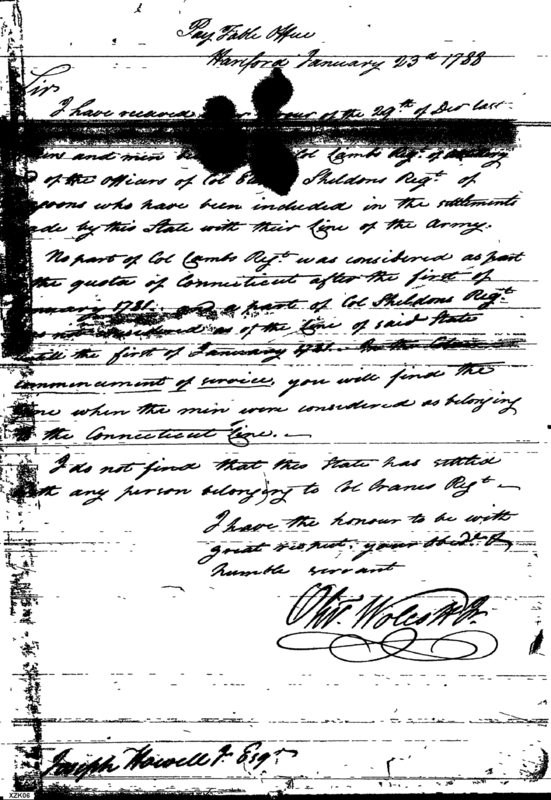 Pay Table Office
Hartford January 23d 1788
Sir
I have received your favour of the 29th of Decr last
and men Col Lambs Regt. of Artillery
of the officers of Col Sheldons Regt. of
who have been included in the settlements
made by this State with their Line of the Army.
No part of Col Lambs Regt was considered as part
the quota of Connecticut after the first of
January 1781. and a part of Col Sheldons Regt.
was not considered as of the Line of said State
the first of January 1781.
commencement of service, you will find the
time when the men were considered as belonging
to the Connecticut Line. —
I do not find that this State has settled
with any person belonging to Col Cranes Regt —
I have the honour to be with
great respect, your Obedt. &
humble servant
Olivr. Wolcott Jr.
Joseph Howell Jr Esqr
XZK06